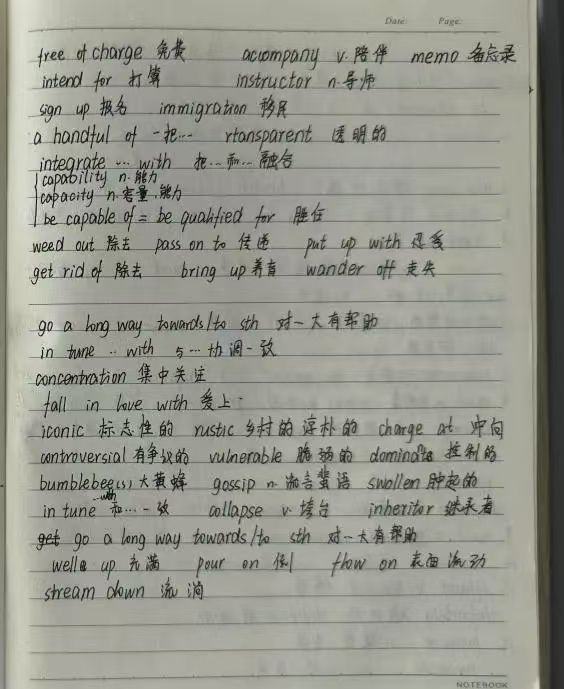 Date: Page:
free of charge 免费 accompany v. 陪伴 memo 备忘录
intend for 打算 instructor n. 导师
sign up 报名 immigration 移民
a handful of 一把… rtansparent 透明的
integrate … with 把…和…融合
capability n. 能力
capacity n. 容量,能力
be capable of = be qualified for 胜任
weed out 除去 pass on to 传递 put up with 忍受
get rid of 除去 bring up 养育 wander off 走失
go a long way towards/to sth 对一大有帮助
in tune … with 与…协调一致
concentration 集中关注
fall in love with 爱上
iconic 标志性的 rustic 乡村的 淳朴的 charge at 冲向
controversial 有争议的 vulnerable 脆弱的 控制的
bumblebee(s) 大黄蜂 gossip n. 流言蜚语 swollen 肿起的
in tune with 和…一致 collapse v. 垮台 inheritor 继承者
get go a long way towards/to sth 对一大有帮助
well up 充满 pour on 倾 flow on 表面流动
stream down 流淌
NOTEBOOK